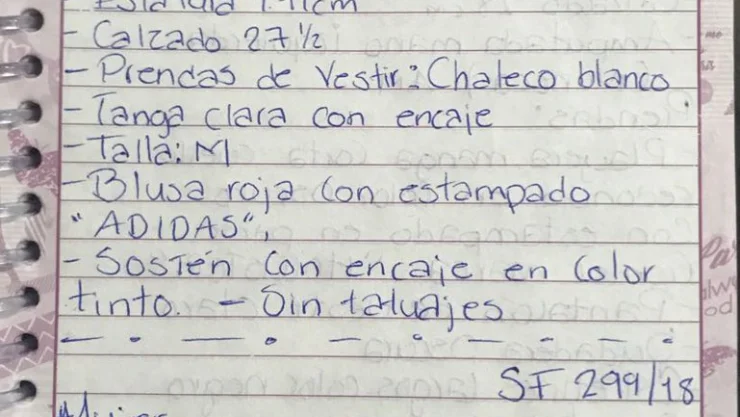 Estatura 1.41cm
- Calzado 27 ½
- Prendas de Vestir: Chaleco blanco
- Tanga clara con encaje
- Talla: M
- Blusa roja con estampado
"ADIDAS",
- Sostén con encaje en color
tinto. - Sin tatuajes
SF 299/18